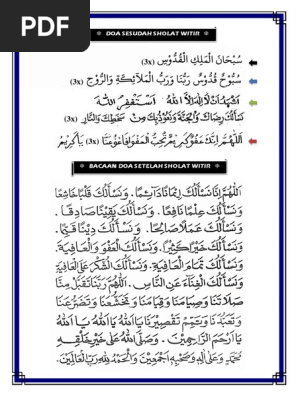 PDF
DOA SESUDAH SHOLAT WITIR
سُبْحَانَ الْمَلِكِ الْقُدُّوْسِ (3x)
سُبُّوْحٌ قُدُّوْسٌ رَبُّنَا وَرَبُّ الْمَلَآئِكَةِ وَالرُّوْحِ (3x)
اَشْهَدُ اَنْ لَا اِلٰهَ اِلَّا اللهُ اَسْتَغْفِرُ اللهَ
نَسْأَلُكَ رِضَاكَ وَالْجَنَّةَ وَنَعُوْذُبِكَ مِنْ سَخَطِكَ وَالنَّارِ (3x)
اَللّٰهُمَّ اِنَّكَ عَفُوٌّ كَرِيْمٌ تُحِبُّ الْعَفْوَ فَاعْفُ عَنَّا (3x) يَاكَرِيْمُ
BACAAN DOA SETELAH SHOLAT WITIR
اَللّٰهُمَّ اِنَّا نَسْأَلُكَ اِيْمَانًا دَائِمًا. وَنَسْأَلُكَ قَلْبًا خَاشِعًا
وَنَسْأَلُكَ عِلْمًا نَافِعًا. وَنَسْأَلُكَ يَقِيْنًا صَادِقًا.
وَنَسْأَلُكَ عَمَلًا صَالِحًا. وَنَسْأَلُكَ دِيْنًا قَيِّمًا.
وَنَسْأَلُكَ خَيْرًا كَثِيْرًا. وَنَسْأَلُكَ الْعَفْوَ وَالْعَافِيَةَ.
وَنَسْأَلُكَ تَمَامَ الْعَافِيَةِ. وَنَسْأَلُكَ الشُّكْرَ عَلَى الْعَافِيَةِ
وَنَسْأَلُكَ الْغِنَآءَ عَنِ النَّاسِ. اَللّٰهُمَّ رَبَّنَا تَقَبَّلْ مِنَّا
صَلَاتَنَا وَصِيَامَنَا وَقِيَامَنَا وَتَخَشُّعَنَا وَتَضَرُّعَنَا
وَتَعَبُّدَنَا وَتَمِّمْ تَقْصِيْرَنَا يَا اَللهُ يَا اَللهُ يَا اَللهُ
يَا اَرْحَمَ الرَّاحِمِيْنَ. وَصَلَّى اللهُ عَلَى خَيْرِ خَلْقِهِ
مُحَمَّدٍ وَعَلَى اٰلِهِ وَصَحْبِهِ اَجْمَعِيْنَ وَالْحَمْدُ لِلّٰهِ رَبِّ الْعَالَمِيْنَ.